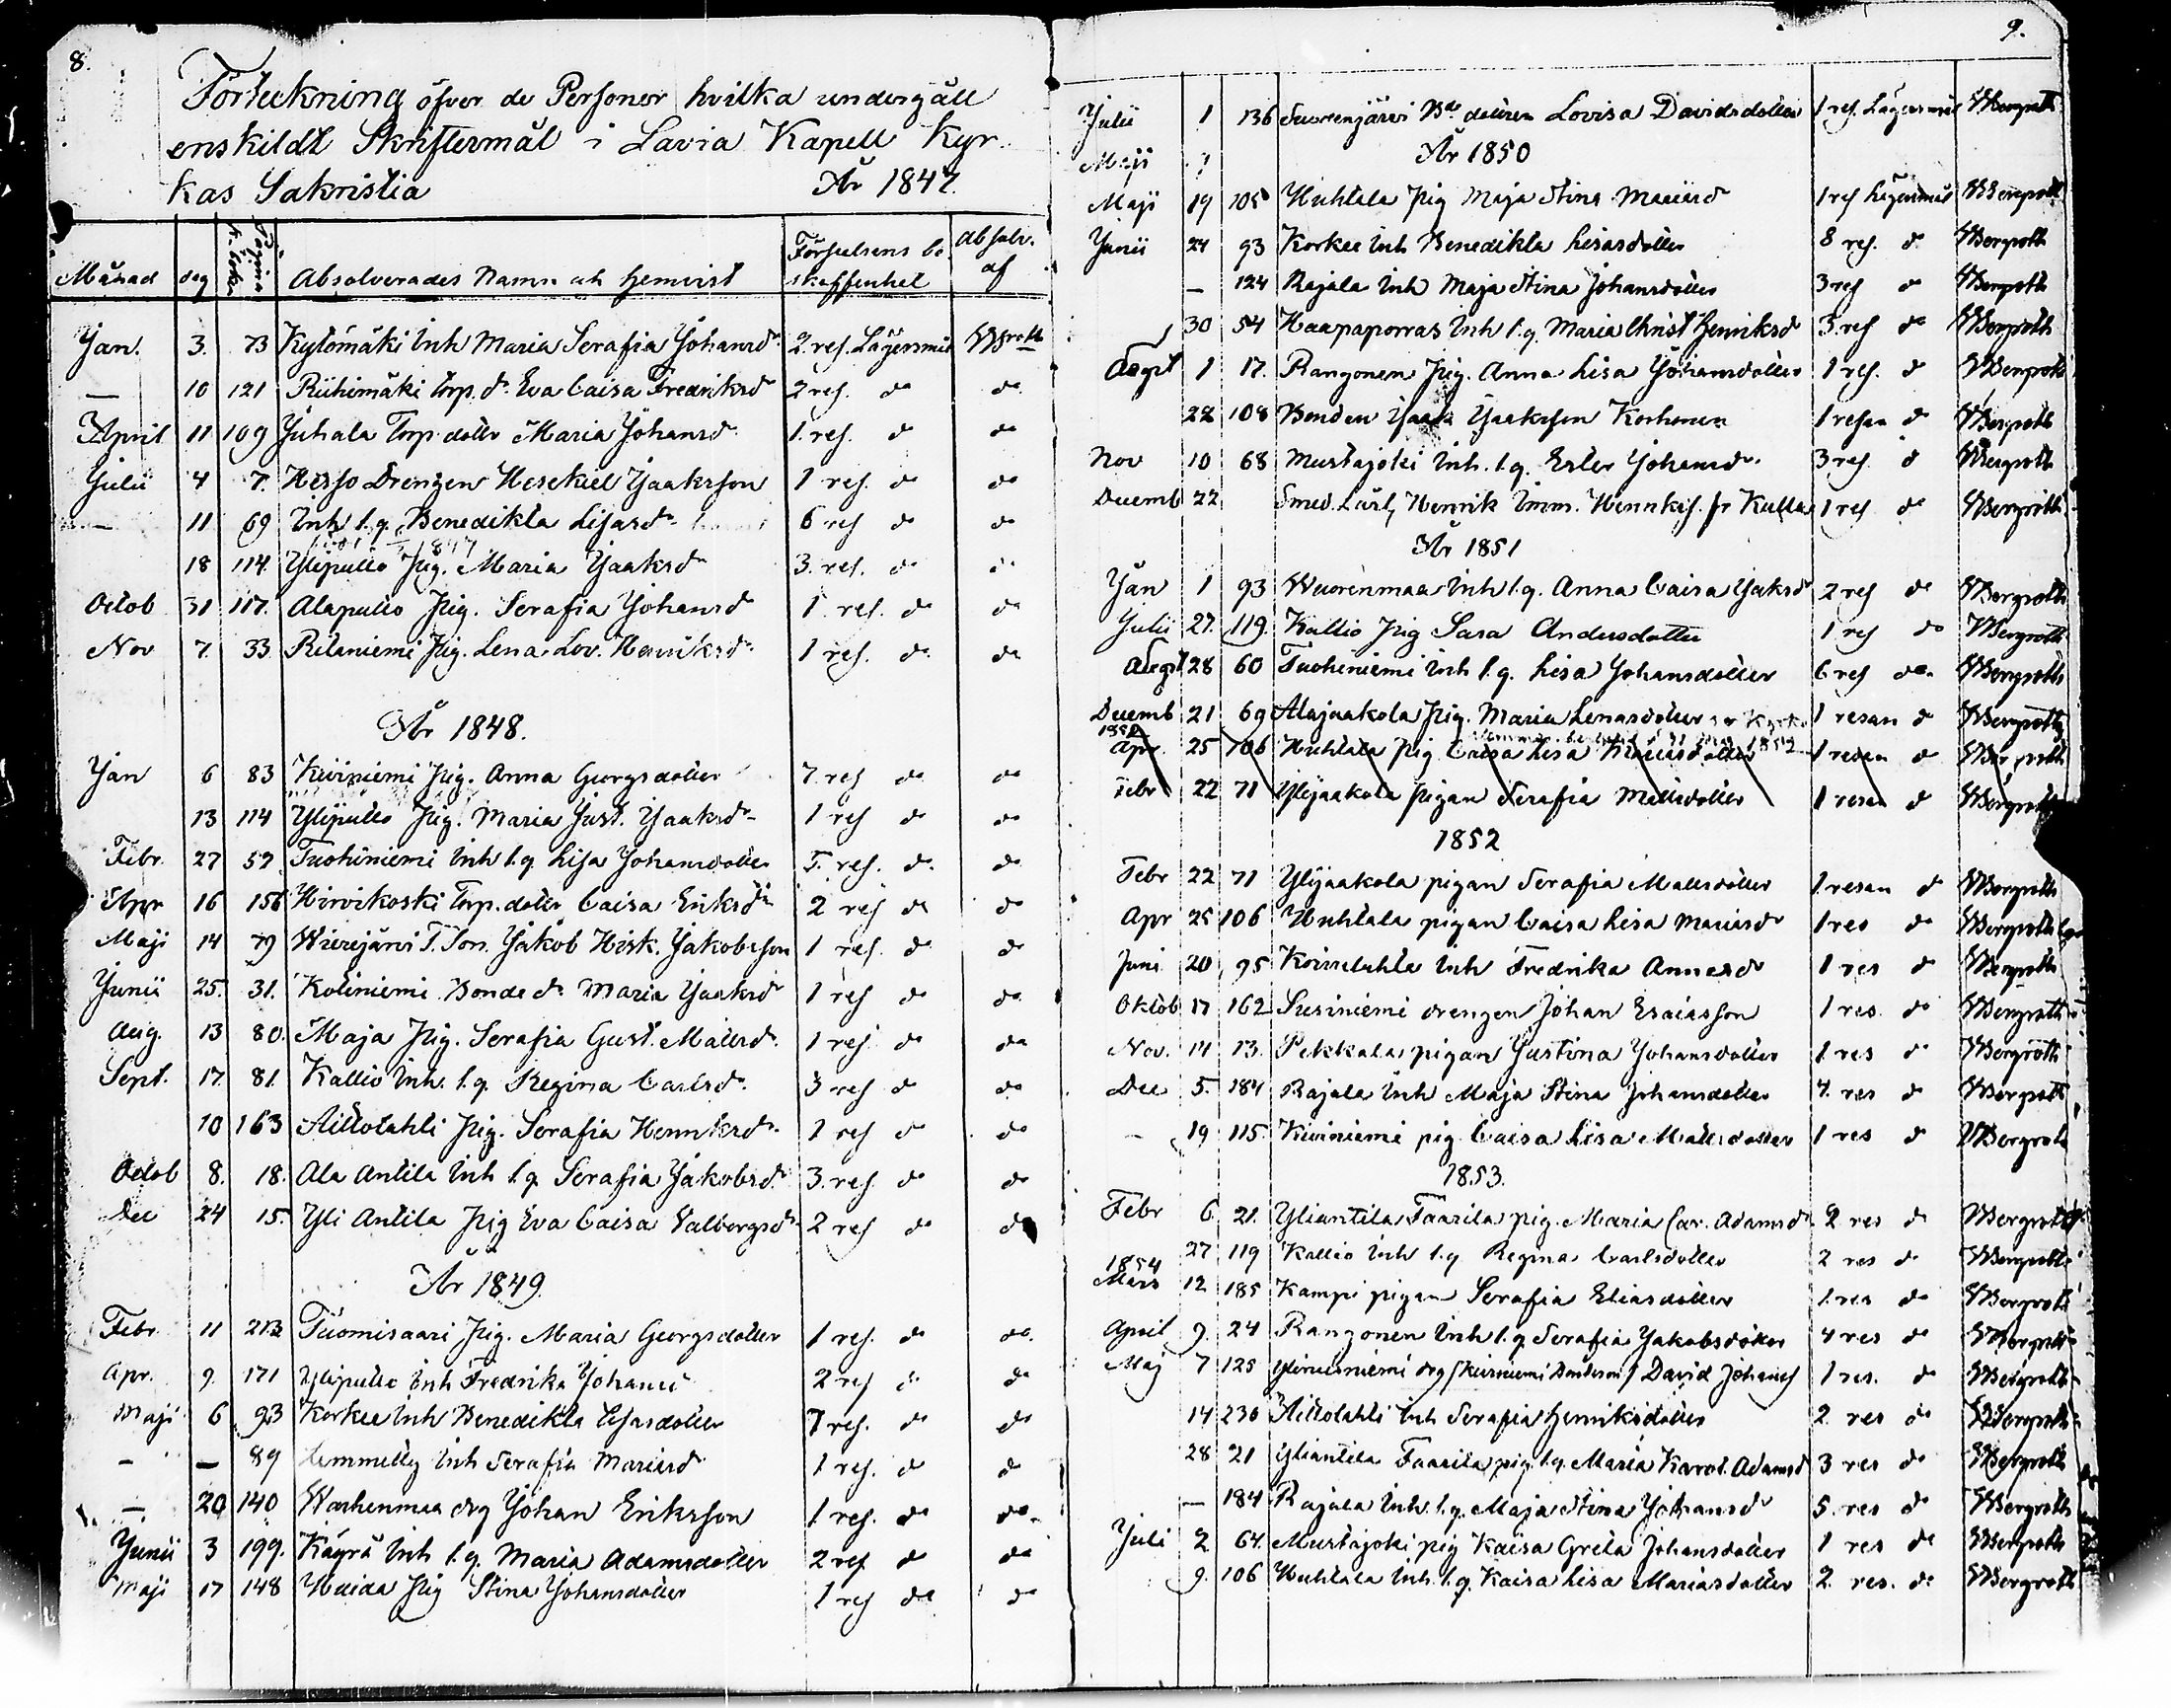 8.
Förteckning öfver de Personer hvilka undergått
enskildt Skriftermål i Lavia Kapell Kyr-
kas Sakristia År 1847.
Månad dag Pagina k. boken Absolverades Namn och hemvist Förseelsens beskaffenhet Absolv. af
Jan. 3. 73 Kylömäki Inh Maria Serafia Johansdr 2. res. Lägersmål
— 10 121 Riihimäki torp. dr Eva Caisa Fredriksdr 2 res. do do
April 11 109 Juhala Torp. dotter Maria Johansd. 1. res. do do
Julii 4 7. Hesso Drengen Hesekiel Jaaksson 1 res. do do
— 11 69 Inh l.q. Benedikta Lisasdr 6 res do do
18 114 Ylipullo Pig. Maria Jaaksdr 3. res. do do
Octob 31 117. Alapullo Pig. Serafia Johansdr 1 res. do do
Nov 7. 33 Pig. Lena Lov. Henriksdr 1 res. do do
År 1848.
Jan 6 83 Kiviniemi Pig. Anna Georgsdotter 7 res do do
13 114 Ylipullo Pig. Maria Just. Jaaksdr 1 res do do
Febr. 27 59 Tuohiniemi Inh l.q Lisa Johansdotter 5. res. do do
Apr 16 156 Hirvikoski Torp. dotter Caisa Eriksdr 2 res do do
Maji 14 79 T. Son. Jakob Hisk. Jakobsson 1 res. do do
Junii 25. 31. Kotiniemi Bonde dr Maria Jaaksdr 1 res do do
Aug. 13 80. Maja Pig. Serafia Gust. Matsd. 1 res do do
Sept. 17. 81. Kallio Inh. l.q Regina Carlsdr 3 res do do
10 163 Aittolahti Pig. Serafia Henriksdr 1 res do do
Octob 8. 18. Ala Antila Inh l.q Serafia Jakobsd. 3. res. do do
Dec 24 15. Yli Antila Pig Eva Caisa Valborgsdr 2 res do do
År 1849.
Febr. 11 213 Tuomisaari Pig. Maria Georgsdotter 1 res. do do
Apr. 9. 171 Ylipullo Inh Fredrika Johansd 2 res do do
Maji 6 93 Korkee Inh Benedikta Lisasdotter 7 res. do do
— — 89 Inh Serafia Mariasd 1 res. do do
— 20 140 drg Johan Eriksson 1 res. do do
Junii 3 199. Käyrä Inh l.q. Maria Adamsdotter 2 res do do
Maji 17 148 Pig Stina Johansdotter 1 res do do
9.
Julii 1 136 Suorenjärvi Bde dottren Lovisa Davidsdotter 1 res. Lägersmål Bergroth
År 1850
Maji
Maji 19 105 Huhtala Pig Maja Stina Mariasd 1 res Lägersmål Bergroth
Junii 24 93 Korkee Inh Benedikta Lisasdotter 8 res. do Bergroth
— 124 Rajala Inh Maja Stina Johansdotter 3 res do Bergroth
30 54 Haapaporras Inh l.q Maria Christ Henriksd 3 res do Bergroth
Augst 1 17. Rangonen Pig. Anna Lisa Johansdotter 1 res. do Bergroth
22 108 Bonden Jaak Jaaksson Korhonen 1 resan do Bergroth
Nov 10 68 Mustajoki Inh. l.q. Ester Johansd. 3 res do Bergroth
Decemb 22 Smed. Lärl, Henrik Imm. fr Kulla 1 res do Bergroth
År 1851
Jan 1 93 Wuorenmaa Inh l.q. Anna Caisa Jaksd 2 res do Bergroth
Julii 27. 119. Kallio Pig Sara Andersdotter 1 res do Bergroth
Augst 28 60 Tuohiniemi Inh l.q. Lisa Johansdotter 6 res do Bergroth
Decemb 21 69 Alajaakola Pig. Maria Lenasdotter 1 resan do Bergroth
1852 Apr. 25 106 Huhtala Pig Caisa Lisa Mariasdotter 1 resan do Bergroth
Febr 22 71 Ylijaakola Pigan Serafia Mattsdotter 1 resan do Bergroth
1852
Febr 22 71 Ylijaakola pigan Serafia Mattsdotter 1 resan do Bergroth
Apr 25 106 Huhtala pigan Caisa Lisa Mariasd 1 res do Bergroth
Juni 20 95 Inh Fredrika Annasd 1 res do Bergroth
Oktob 17 162 Susiniemi drengen Johan Esaiasson 1 res. do Bergroth
Nov. 14 13. Pekkala pigan Justina Johansdotter 1 res do Bergroth
Dec 5. 184 Rajala Inh Maja Stina Johansdotter 4. res do Bergroth
— 19 115 Kiviniemi pig Caisa Lisa Mattsdotter 1 res do Bergroth
1853.
Febr 6 21. Yliantila Faarila pig. Maria Car. Adamsd. 2 res do Bergroth
27 119 Kallio Inh l.q Regina Carlsdotter 2 res do Bergroth
1854
Mars 12 185 Kampi pigan Serafia Eliasdotter 1 res do Bergroth
April 9. 24 Rangonen Inh l.q Serafia Jakobsdotter 4 res do Bergroth
Maj 7 125 drg David Johans 1 res. do Bergroth
14 230 Aittolahti Inh Serafia Henriksdotter 2 res do Bergroth
28 21 Yliantila Faarila pig. l.q. Maria Karol. Adamsd 3 res do Bergroth
— 184 Rajala Inh. l.q. Maja Stina Johansd 5. res do Bergroth
Juli 2 64. Mustajoki pig Kaisa Greta Johansdotter 1 res do Bergroth
9. 106 Huhtala Inh. l.q. Kaisa Lisa Mariasdotter 2 res. do Bergroth